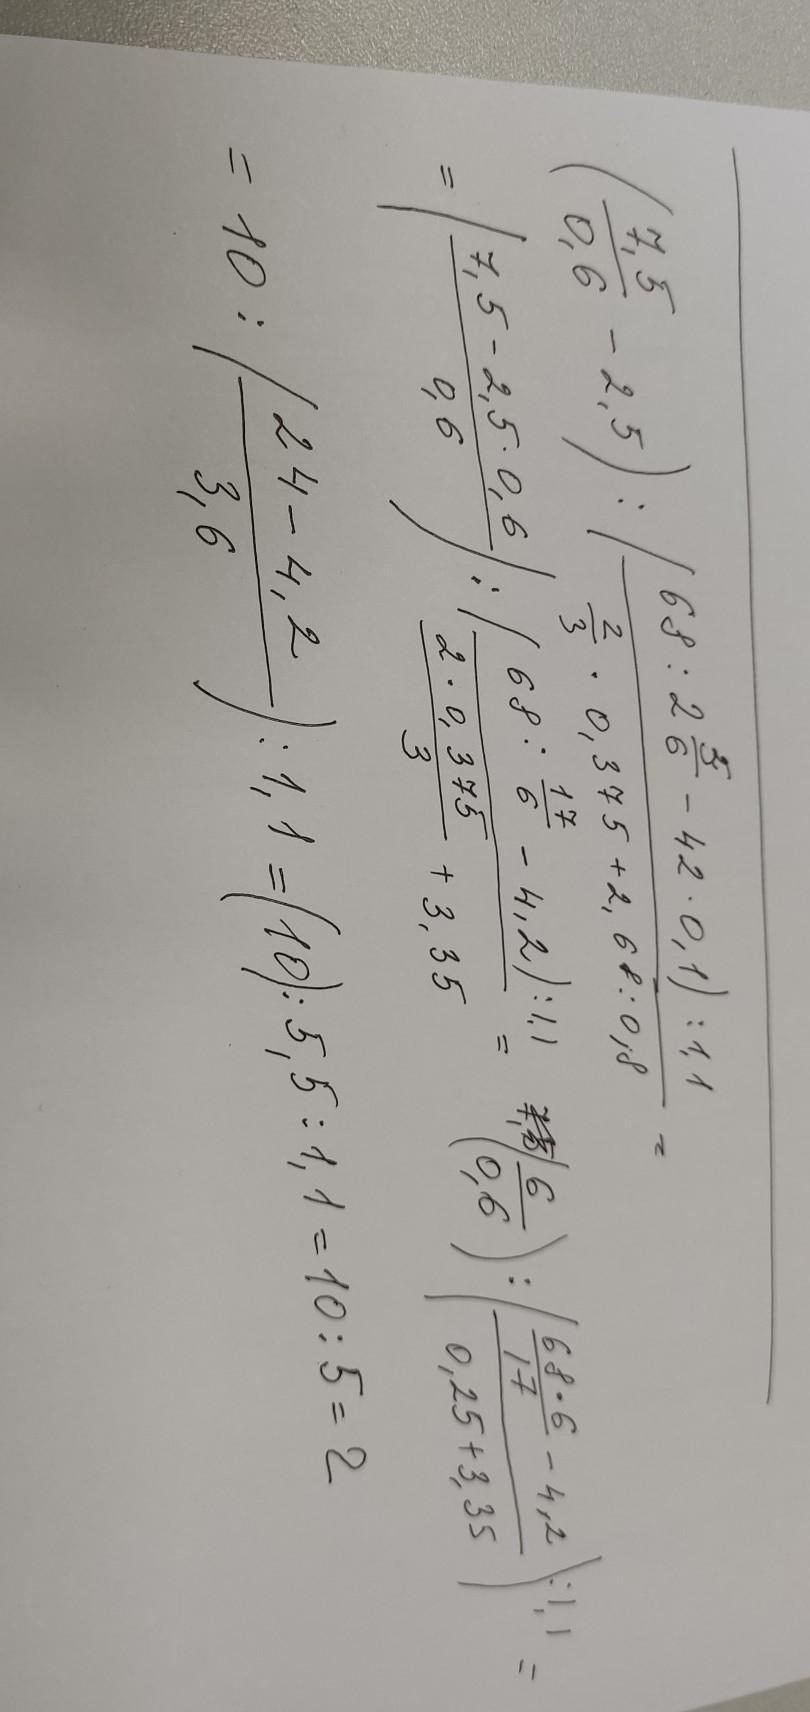 (7,5/0,6 - 2,5) : (68 : 2 5/6 - 42 · 0,1) : 1,1 / (2/3 · 0,375 + 2,68 : 0,8) =
= (7,5 - 2,5 · 0,6 / 0,6) : (68 : 17/6 - 4,2) : 1,1 / (2 · 0,375 / 3 + 3,35) = (6/0,6) : (68 · 6 / 17 - 4,2 / 0,25 + 3,35) : 1,1 =
= 10 : (24 - 4,2 / 3,6) : 1,1 = (10) : 5,5 : 1,1 = 10 : 5 = 2